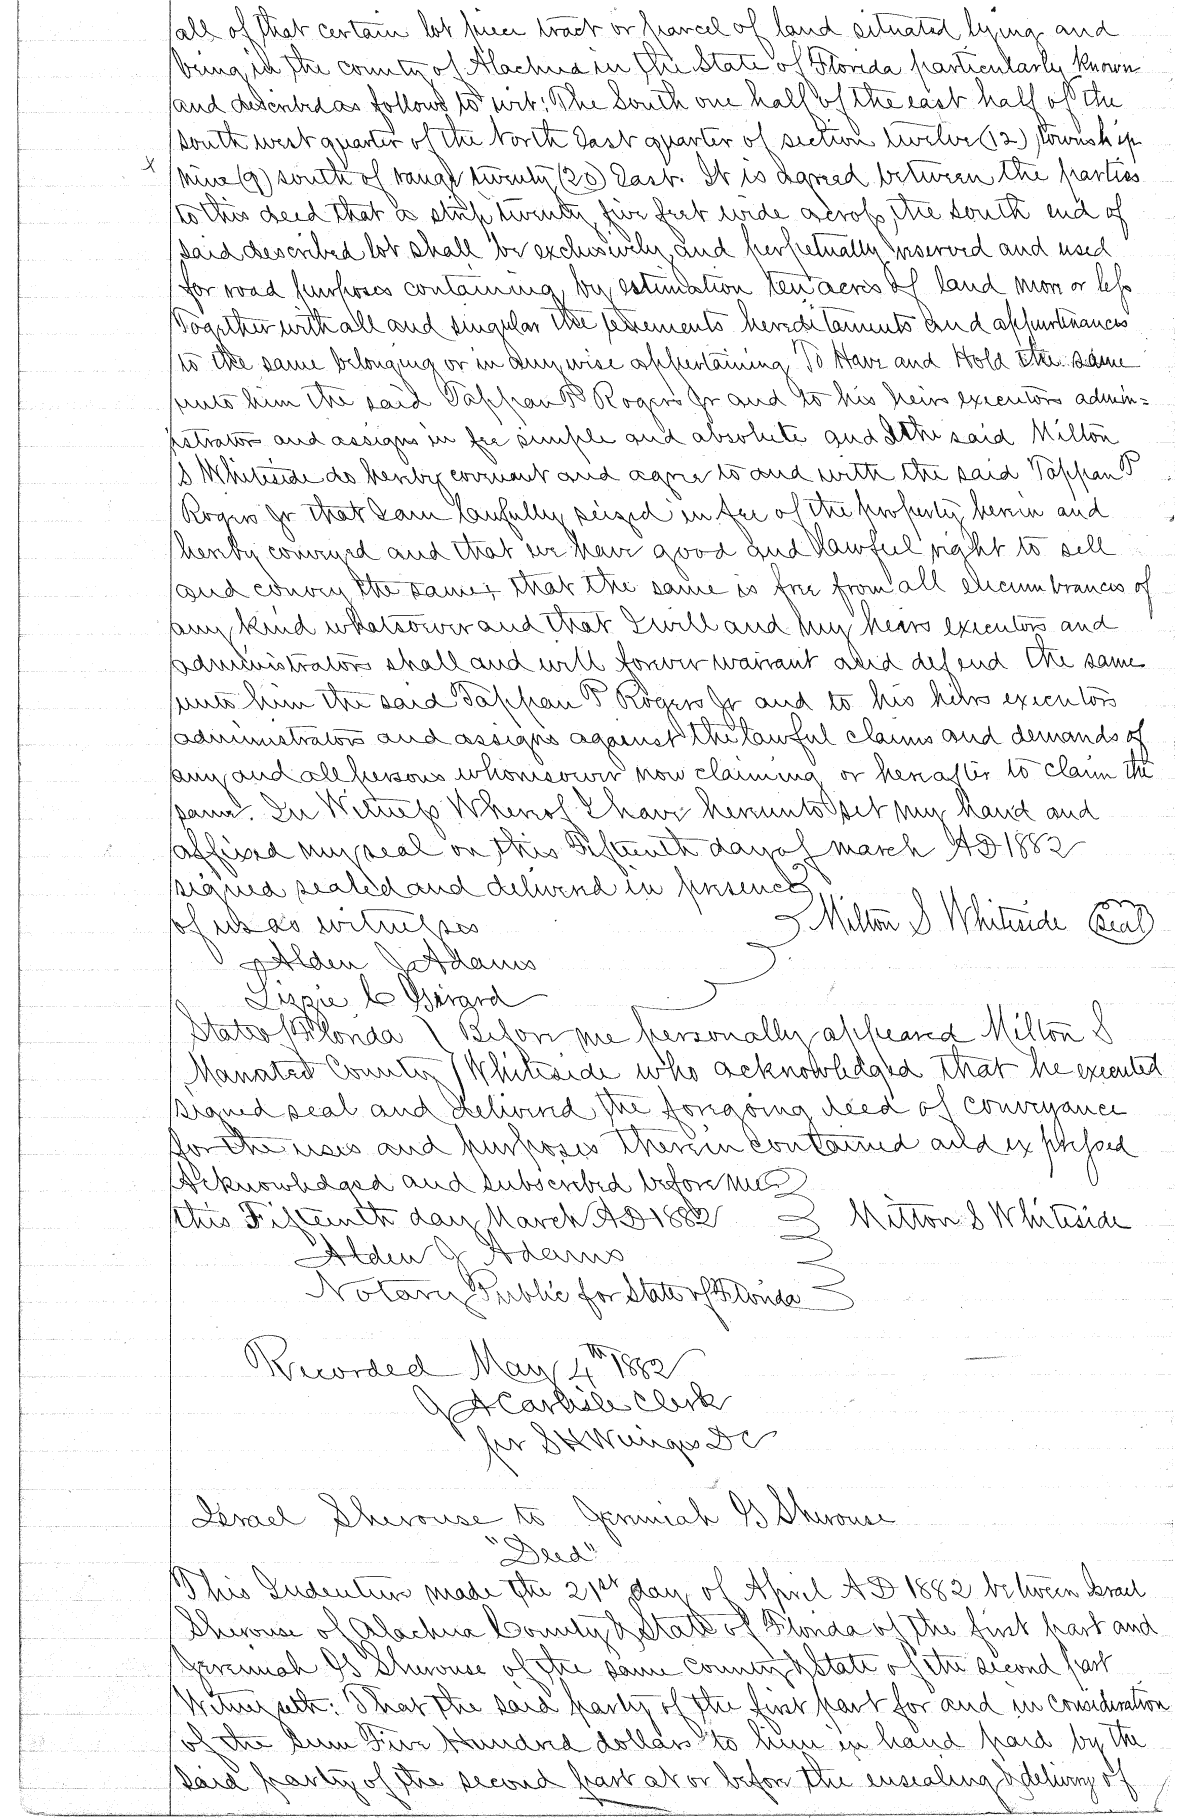 all of that certain lot piece tract or parcel of land situated lying and
being in the county of Alachua in the State of Florida particularly known
and described as follows to wit: The South one half of the east half of the
south west quarter of the North East quarter of section twelve (12) township
x nine (9) south of range twenty (20) East. It is agreed between the parties
to this deed that a strip twenty five feet wide across the south end of
said described lot shall be exclusively and perpetually reserved and used
for road purposes containing by estimation ten acres of land more or less
Together with all and singular the tenements hereditaments and appurtenances
to the same belonging or in any wise appertaining To Have and Hold the same
unto him the said Tappan P Rogers Jr and to his heirs executors admin=
istrators and assigns in fee simple and absolute and I the said Milton
S Whiteside do hereby covenant and agree to and with the said Tappan P
Rogers Jr that I am lawfully seized in fee of the property herein and
hereby conveyed and that we have good and lawful right to sell
and convey the same; that the same is free from all encumbrances of
any kind whatsoever and that I will and my heirs executors and
administrators shall and will forever warrant and defend the same
unto him the said Tappan P Rogers Jr and to his heirs executors
administrators and assigns against the lawful claims and demands of
any and all persons whomsoever now claiming or hereafter to claim the
same. In Witness Whereof I have hereunto set my hand and
affixed my seal on this Fifteenth day of March AD 1882
signed sealed and delivered in presence
of us as witnesses Milton S Whiteside (seal)
Alden J Adams
Lizzie C Girard
State of Florida ) Before me personally appeared Milton S
Manatee County ) Whiteside who acknowledged that he executed
signed seal and delivered the foregoing deed of conveyance
for the uses and purposes therein contained and expressed
Acknowledged and subscribed before me
this Fifteenth day March AD 1882 Milton S Whiteside
Alden J Adams
Notary Public for State of Florida
Recorded May 4th 1882
J A Carlisle Clerk
per S H Wienges DC
Israel Sherouse to Jeremiah G Sherouse
"Deed"
This Indenture made the 21st day of April AD 1882 between Israel
Sherouse of Alachua County & State of Florida of the first part and
Jeremiah G Sherouse of the same county & State of the second part
Witnesseth: That the said party of the first part for and in consideration
of the Sum Five Hundred dollars to him in hand paid by the
said party of the second part at or before the ensealing & delivery of